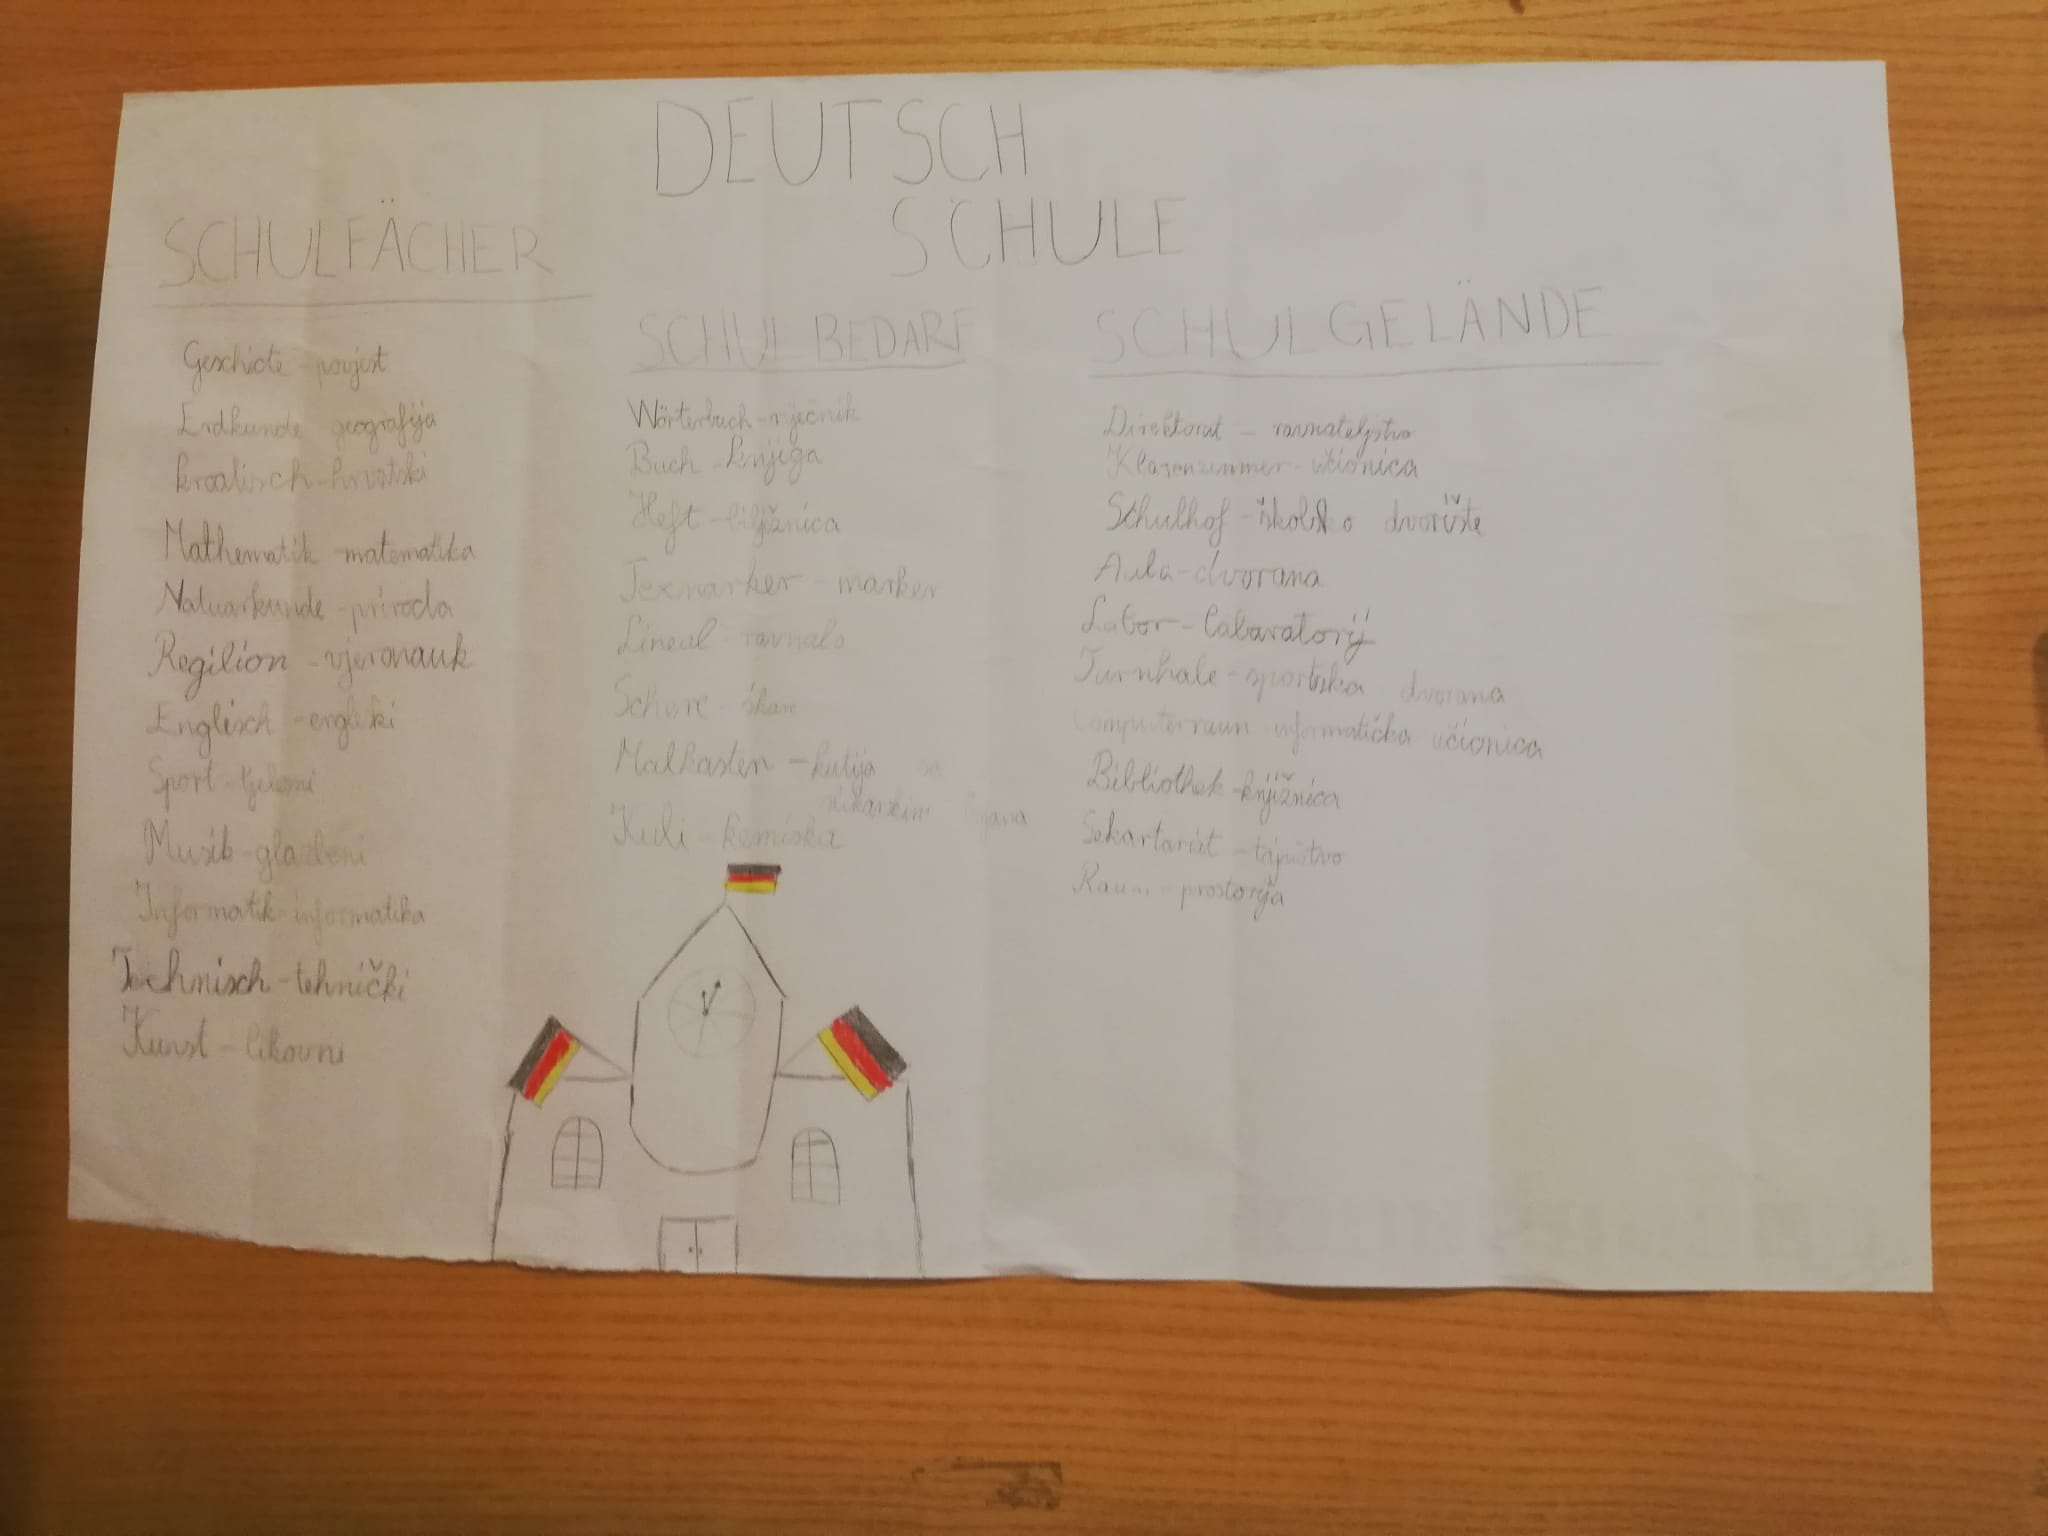 DEUTSCH
SCHULE
SCHULFÄCHER
Geschicte - povjest
Erdkunde - geografija
kroatisch - hrvatski
Mathematik - matematika
Natuarkunde - priroda
Regilion - vjeronauk
Englisch - engleski
Sport - tjelesni
Musik - glazbeni
Informatik - informatika
Technisch - tehnički
Kunst - likovni
SCHULBEDARF
Wörterbuch - rječnik
Buch - knjiga
Heft - biljižnica
Texmarker - marker
Lineal - ravnalo
Schere - škare
Malkasten - kutija sa
slikarskim bojana
Kuli - kemiska
SCHULGELÄNDE
Direktorat - ravnateljstvo
Klasenzimmer - učionica
Schulhof - školsko dvorište
Aula - dvorana
Labor - labaratorij
Turnhale - sportska dvorana
Computerraun - informatička učionica
Bibliothek - knjižnica
Sekartariat - tajništvo
Raum - prostorija